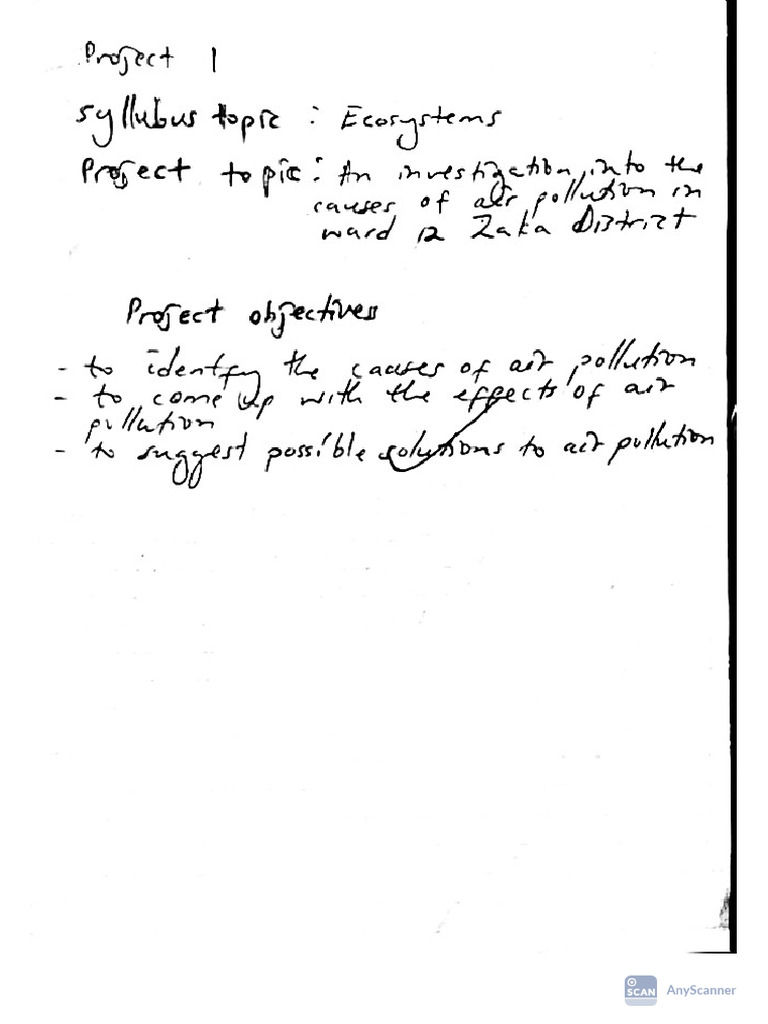 Project 1
Syllubus topic : Ecosystems
Project topic : An investigation into the
causes of air pollution in
ward 12 Zaka District
Project objectives
- to identfy the causes of air pollution
- to come up with the effects of air
pollution
- to suggest possible solutions to air pollution
SCAN AnyScanner